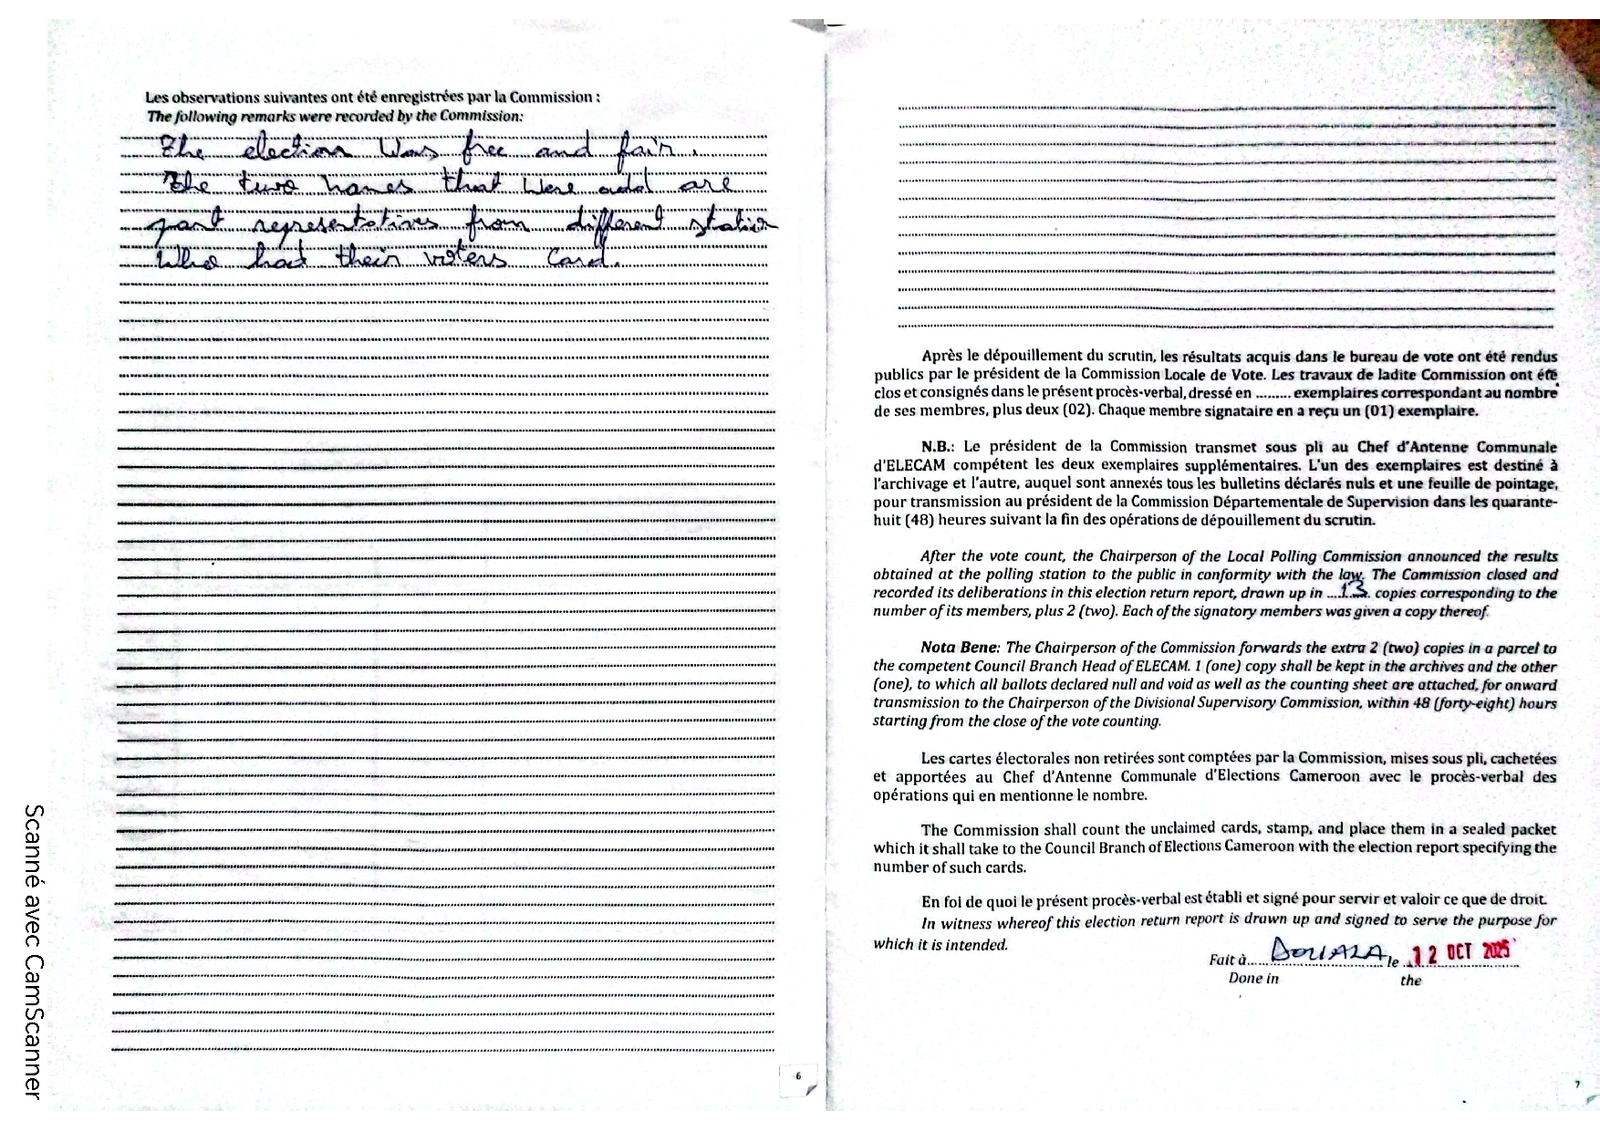 Les observations suivantes ont été enregistrées par la Commission :
The following remarks were recorded by the Commission:
The election was free and fair.
The two names that were add are
part representatives from different station
who had their voters card.
6
Après le dépouillement du scrutin, les résultats acquis dans le bureau de vote ont été rendus
publics par le président de la Commission Locale de Vote. Les travaux de ladite Commission ont été
clos et consignés dans le présent procès-verbal, dressé en ......... exemplaires correspondant au nombre
de ses membres, plus deux (02). Chaque membre signataire en a reçu un (01) exemplaire.
N.B.: Le président de la Commission transmet sous pli au Chef d'Antenne Communale
d'ELECAM compétent les deux exemplaires supplémentaires. L'un des exemplaires est destiné à
l'archivage et l'autre, auquel sont annexés tous les bulletins déclarés nuls et une feuille de pointage,
pour transmission au président de la Commission Départementale de Supervision dans les quarante-
huit (48) heures suivant la fin des opérations de dépouillement du scrutin.
After the vote count, the Chairperson of the Local Polling Commission announced the results
obtained at the polling station to the public in conformity with the law. The Commission closed and
recorded its deliberations in this election return report, drawn up in ...13... copies corresponding to the
number of its members, plus 2 (two). Each of the signatory members was given a copy thereof.
Nota Bene: The Chairperson of the Commission forwards the extra 2 (two) copies in a parcel to
the competent Council Branch Head of ELECAM. 1 (one) copy shall be kept in the archives and the other
(one), to which all ballots declared null and void as well as the counting sheet are attached, for onward
transmission to the Chairperson of the Divisional Supervisory Commission, within 48 (forty-eight) hours
starting from the close of the vote counting.
Les cartes électorales non retirées sont comptées par la Commission, mises sous pli, cachetées
et apportées au Chef d'Antenne Communale d'Elections Cameroon avec le procès-verbal des
opérations qui en mentionne le nombre.
The Commission shall count the unclaimed cards, stamp, and place them in a sealed packet
which it shall take to the Council Branch of Elections Cameroon with the election report specifying the
number of such cards.
En foi de quoi le présent procès-verbal est établi et signé pour servir et valoir ce que de droit.
In witness whereof this election return report is drawn up and signed to serve the purpose for
which it is intended.
Fait à..... DOUALA le 12 OCT 2025
Done in the
7
Scanné avec CamScanner